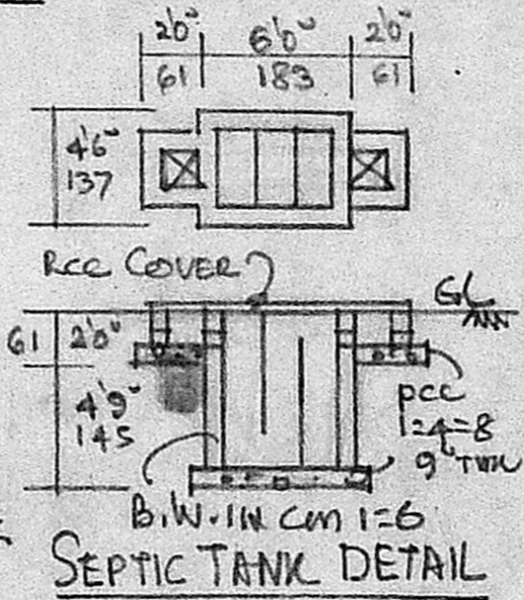 2'0" 6'0" 2'0"
61 183 61
4'6"
137
RCC COVER
GL
61 2'0"
4'9"
145
PCC
1=4=8
9" THK
B.W. IN CM 1=6
SEPTIC TANK DETAIL